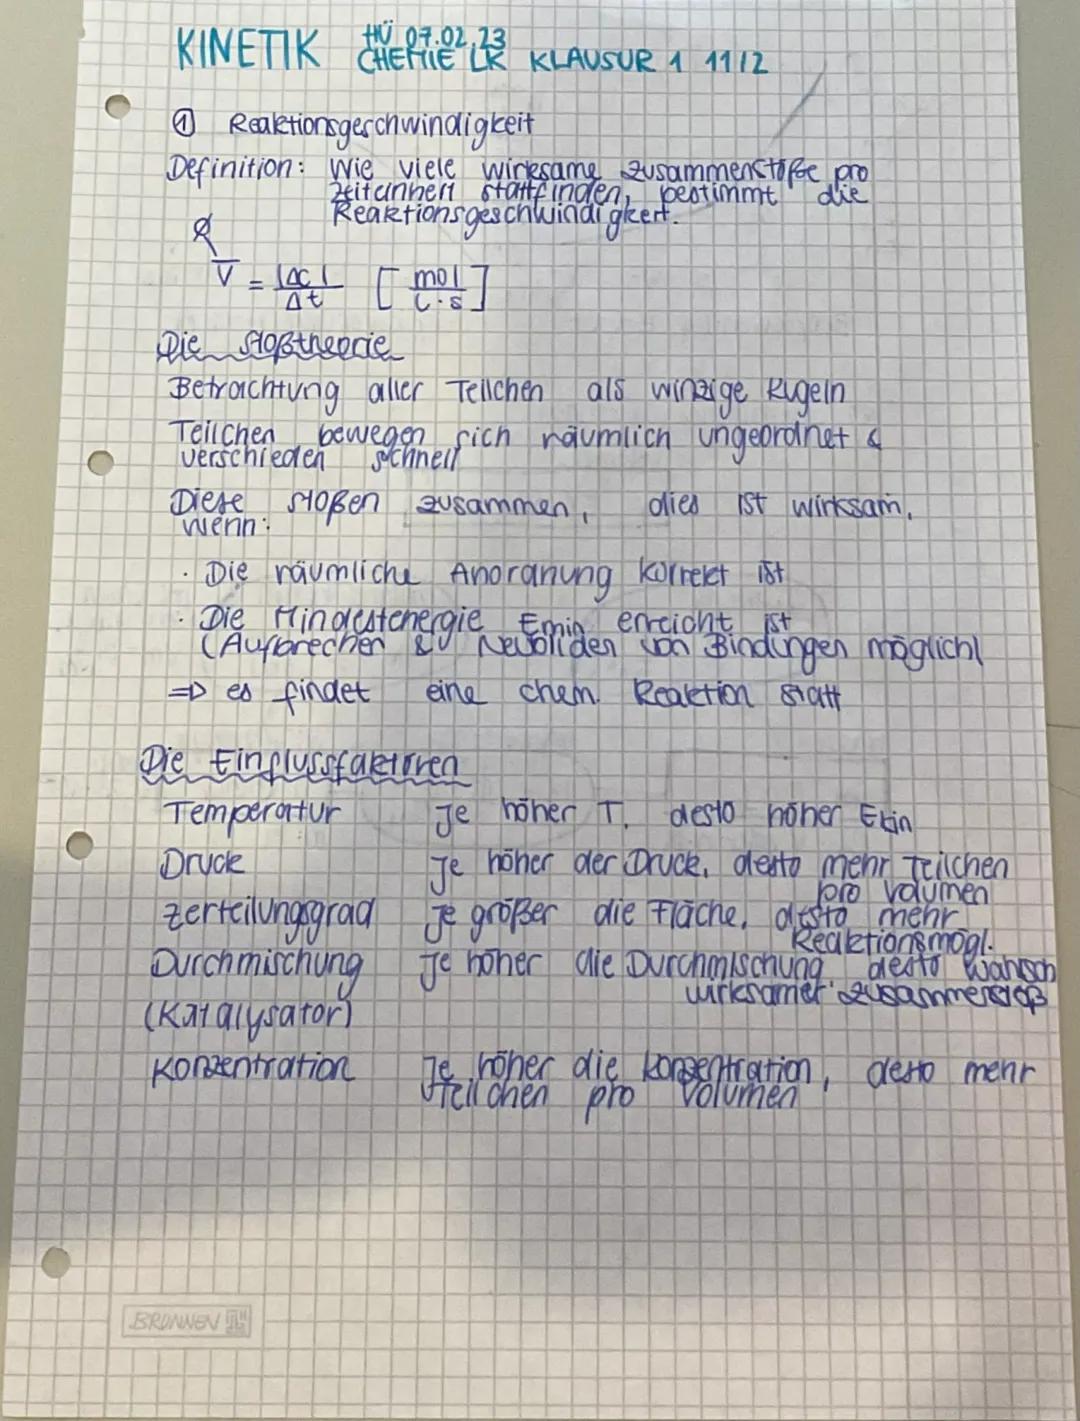 KINETIK HÜ 07.02.23
CHEMIE LK KLAUSUR 1 11/2
① Reaktionsgeschwindigkeit
Definition: Wie viele wirksame Zusammenstöße pro
Zeiteinheit stattfinden, bestimmt die
Reaktionsgeschwindigkeit.
V = |Δc| / Δt [mol / L·s]
Die Stoßtheorie
Betrachtung aller Teilchen als winzige Kugeln
Teilchen bewegen sich räumlich ungeordnet &
verschieden schnell
Diese stoßen zusammen, dies ist wirksam,
wenn:
· Die räumliche Anordnung korrekt ist
· Die Mindestenergie Emin erreicht ist
(Aufbrechen & Neubilden von Bindungen möglich)
=> es findet eine chem. Reaktion statt
Die Einflussfaktoren
Temperatur Je höher T, desto höher Ekin
Druck Je höher der Druck, desto mehr Teilchen
pro Volumen
Zerteilungsgrad Je größer die Fläche, desto mehr
Reaktionsmögl.
Durchmischung Je höher die Durchmischung desto wahrsch
wirksamer Zusammenstoß
(Katalysator)
Konzentration Je höher die Konzentration, desto mehr
Teilchen pro Volumen
BRUNNEN